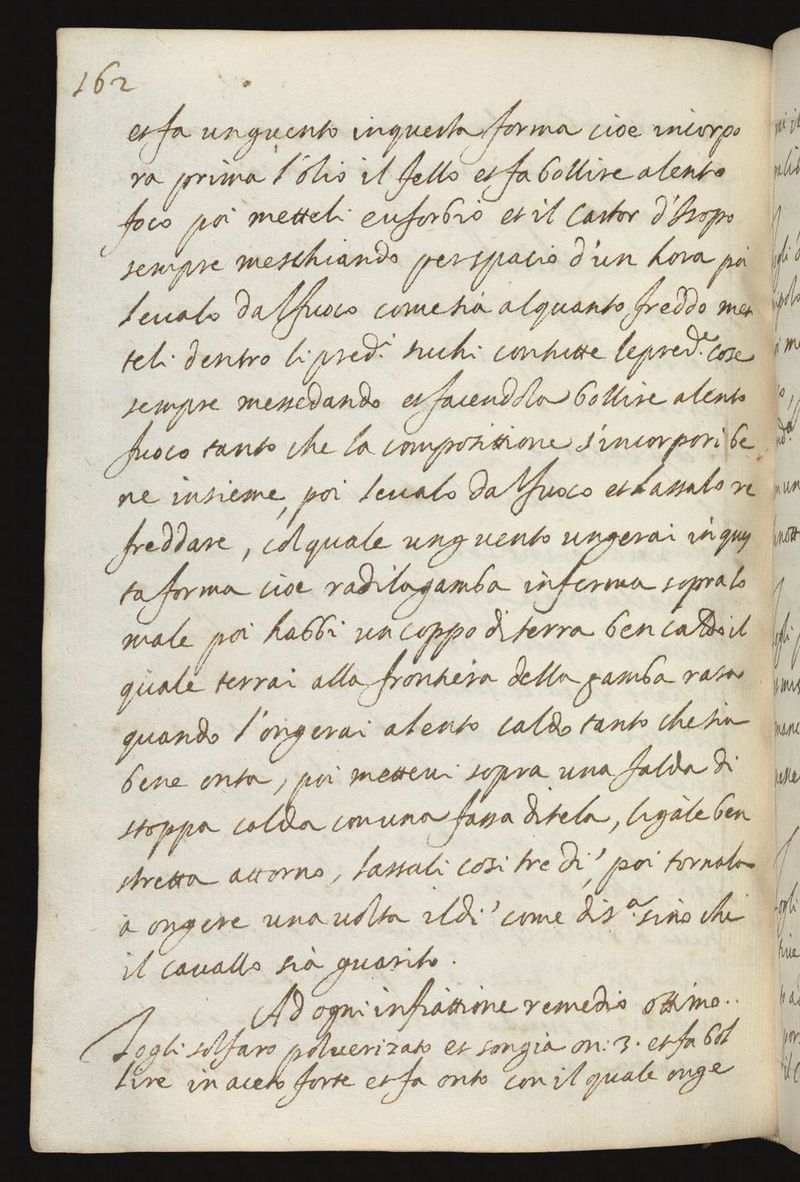 162
et fa unguento inquesta forma cioe incorpo
ra prima l'olio il fello et fa bollire a lento
foco poi metteli euforbio et il Castor d'Isopo
sempre meschiando per spacio d'un hora poi
leualo dal fuoco come sia alquanto freddo met
teli dentro li pred.i suchi con tutte le pred.e cose
sempre messedando et facendola bollire a lento
fuoco tanto che la compositione s'incorpori be
ne insieme, poi leualo dal fuoco et lassalo re
freddare, col quale unguento ungerai in ques
ta forma cioe radi la gamba inferma sopra lo
male poi habbi un coppo di terra ben caldo il
quale terrai alla frontiera della gamba rasa
quando l'ongerai a lento caldo tanto che sia
bene onta, poi metteui sopra una falda di
stoppa calda con una fassa di tela, ligàle ben
stretta attorno, lassali cosi tre dì, poi tornala
à ongere una uolta il dì come di s.a sino che
il cauallo sià guarito.
Ad ogni infiattione remedio ottimo..
Togli solfaro poluerizato et songia on: 3. et fa bol
lire in aceto forte et fa onto con il quale onge